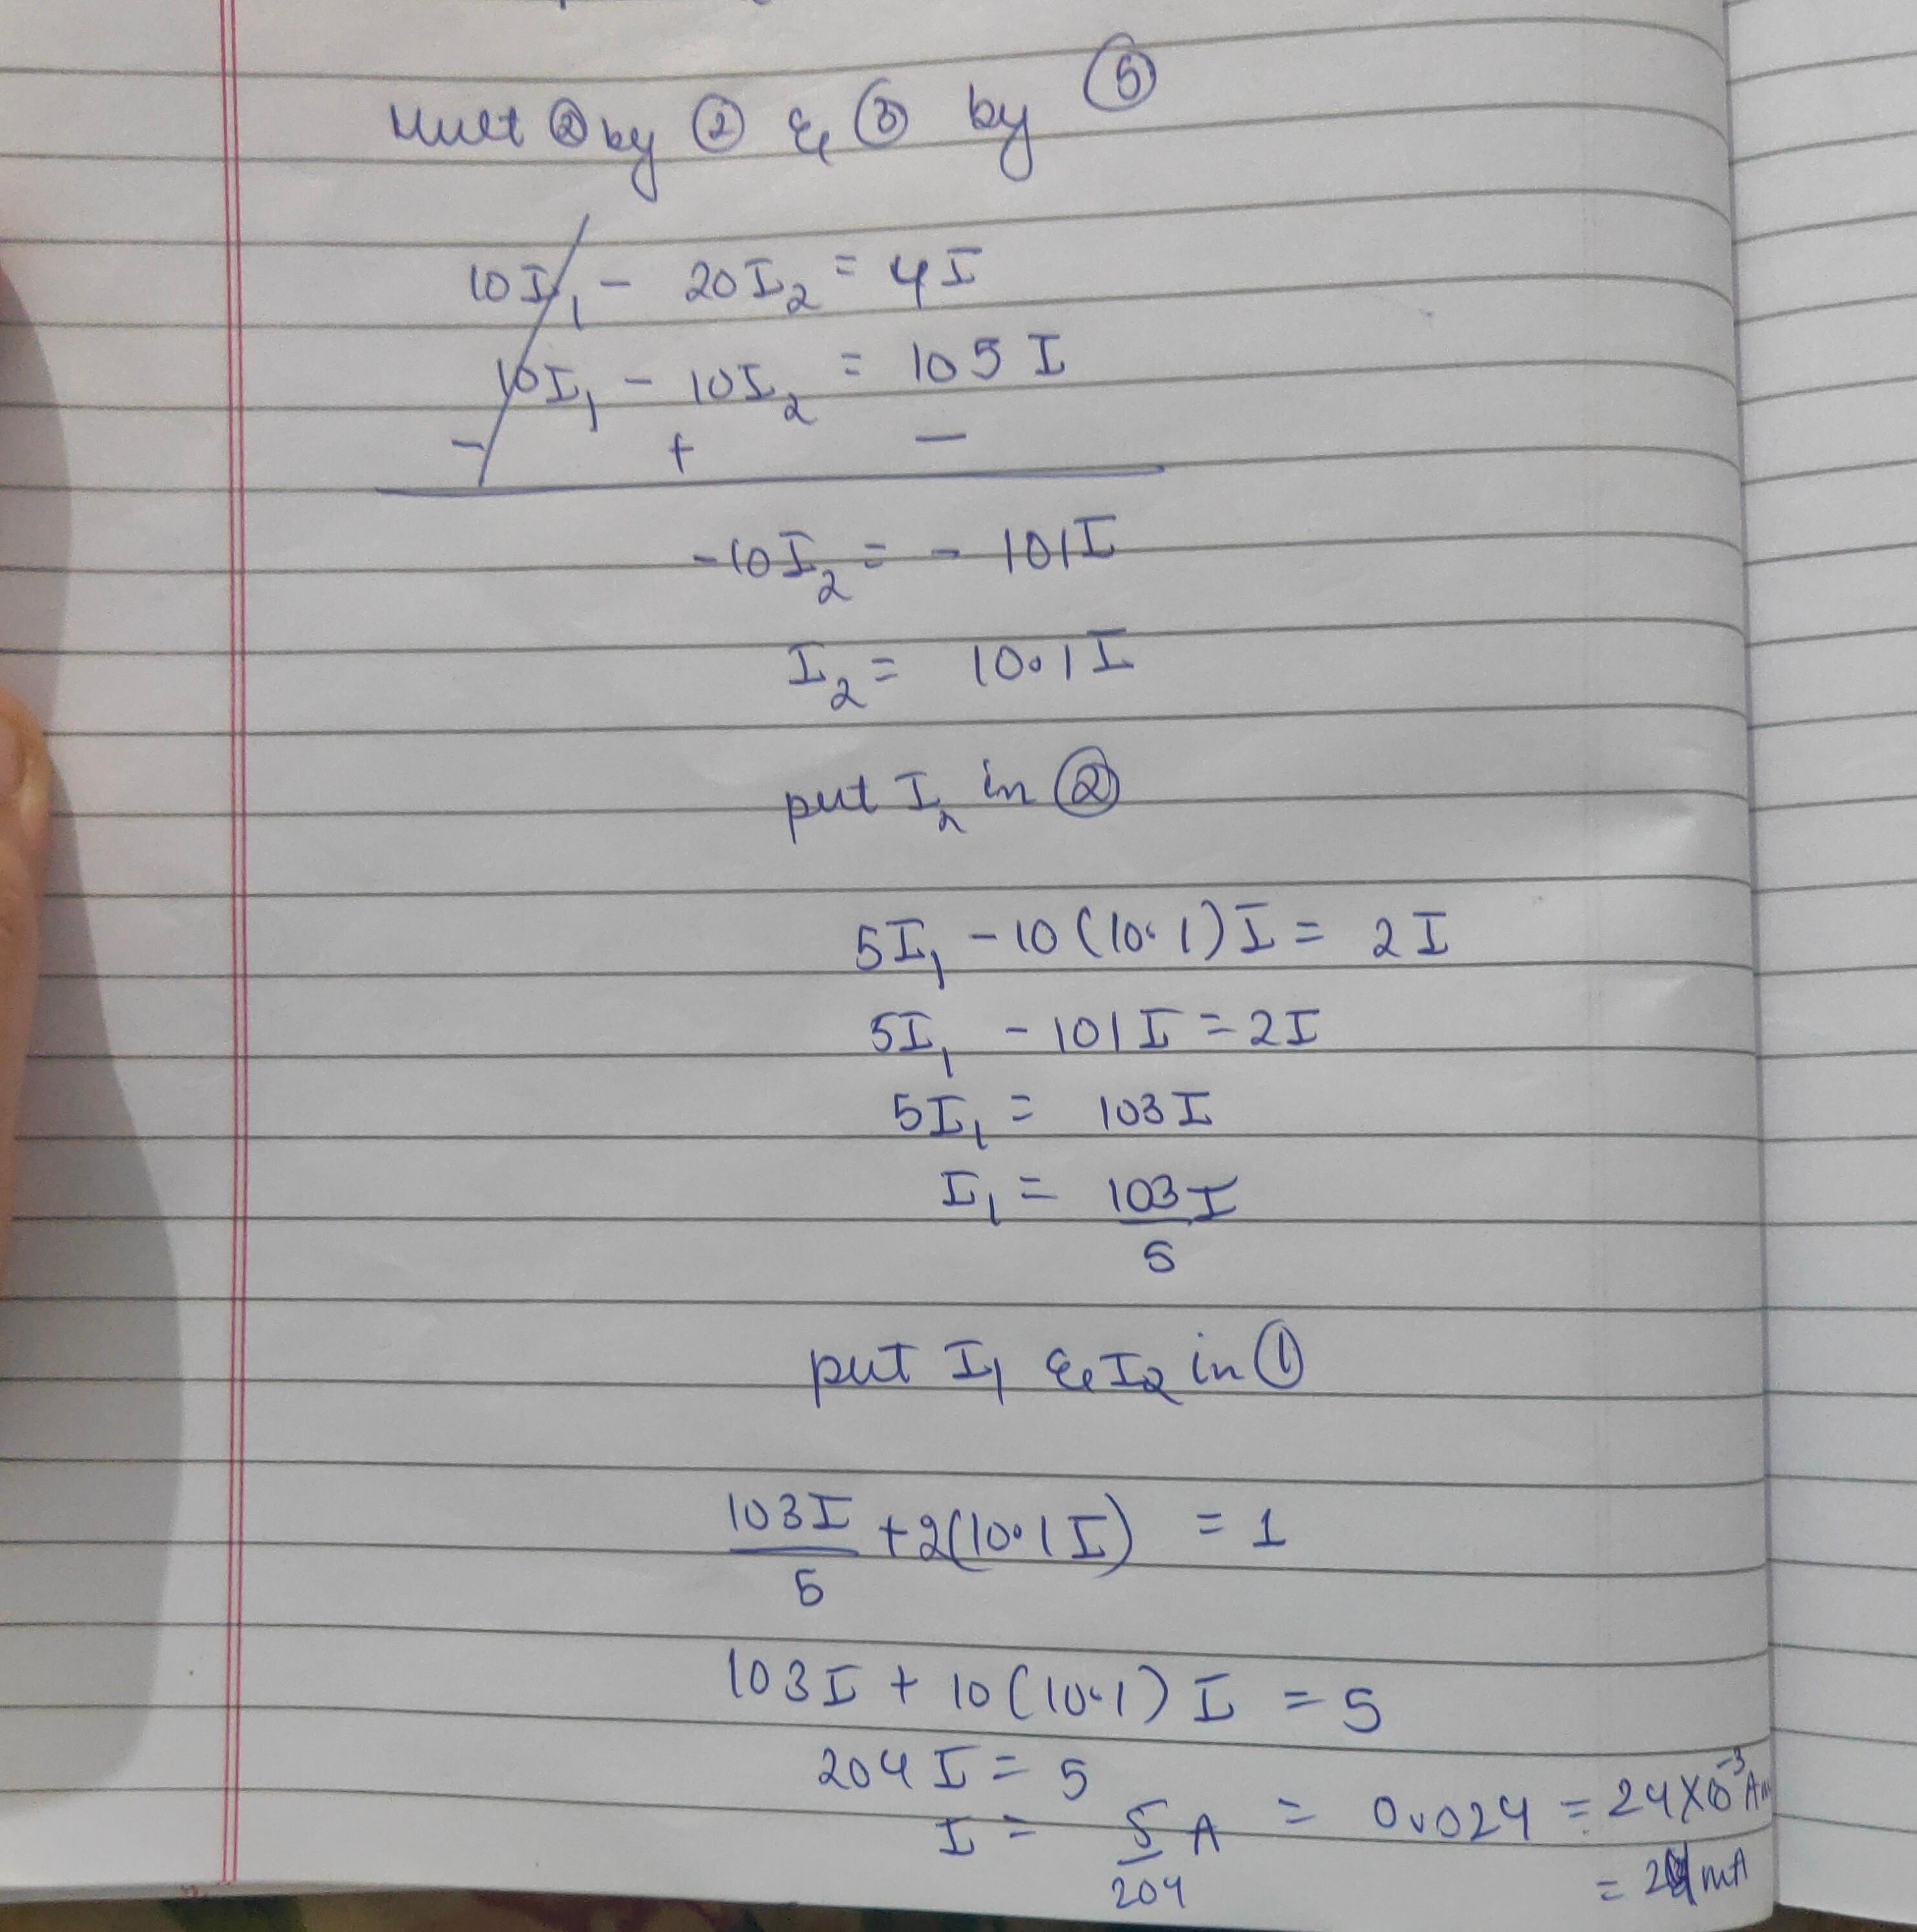 Mult ② by ② & ③ by ⑤
10I₁ - 20I₂ = 4I
10I₁ - 10I₂ = 105 I
- + -
-10I₂ = - 101I
I₂ = 10.1I
put I₂ in ②
5I₁ - 10(10.1)I = 2I
5I₁ - 101I = 2I
5I₁ = 103I
I₁ = 103I
5
put I₁ & I₂ in ①
103I + 2(10.1I) = 1
5
103I + 10(10.1)I = 5
204I = 5
I = 5 A = 0.024 = 24X10⁻³A
204 = mA